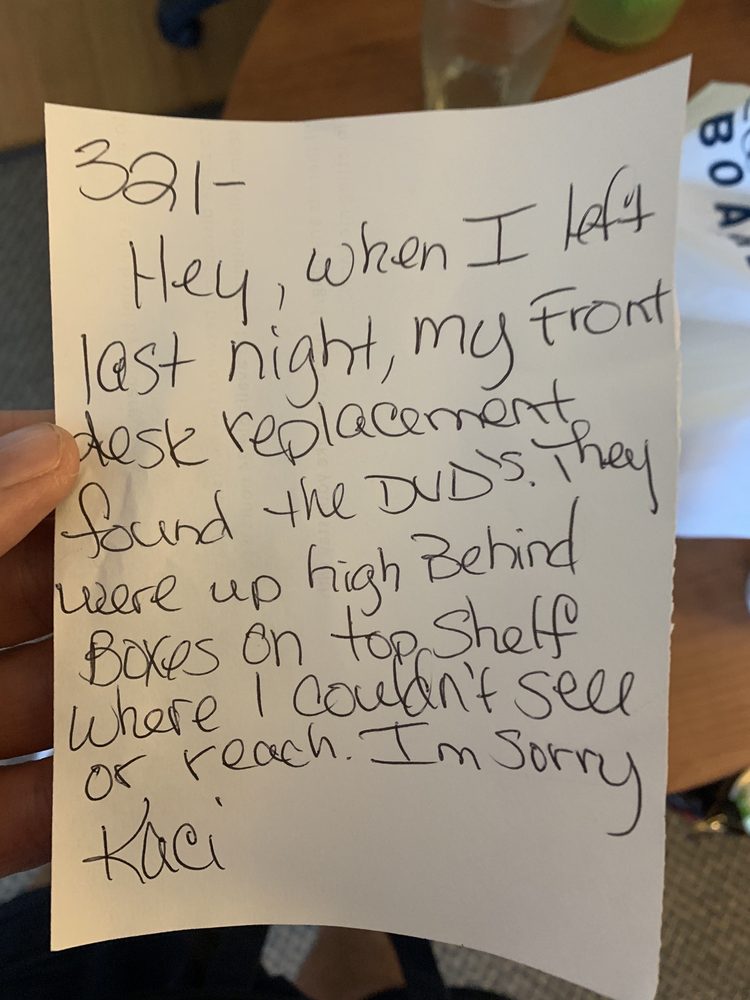 321-
Hey, when I left
last night, my Front
desk replacement
found the DVD's. They
were up high Behind
Boxes on top Shelf
where I couldn't seee
or reach. I'm sorry
Kaci
BOA